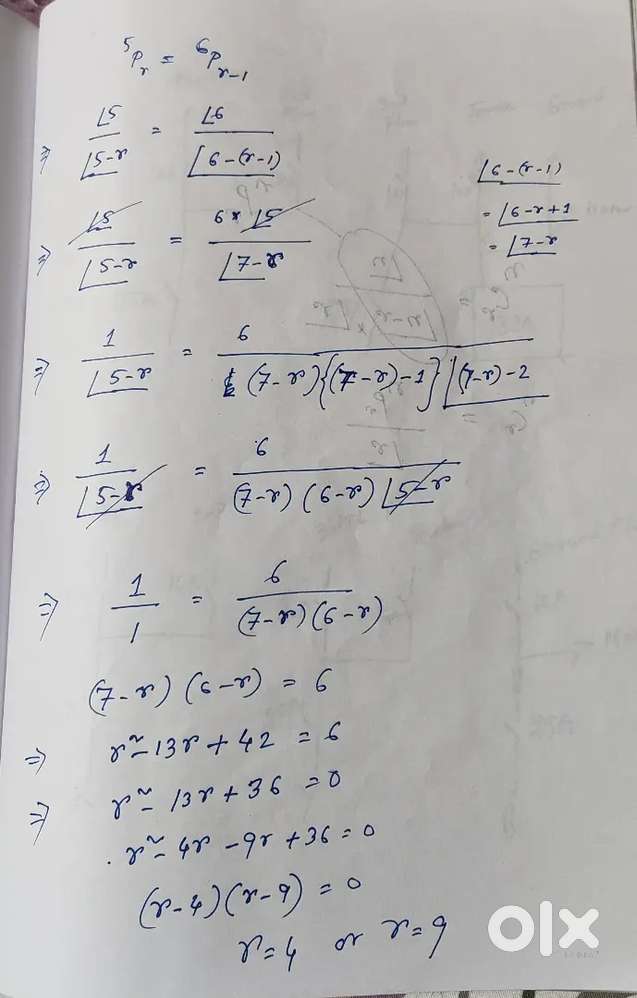 ⁵Pᵣ = ⁶Pᵣ₋₁
⇒ ⌊5 / ⌊5-r = ⌊6 / ⌊6-(r-1)
⌊6-(r-1)
= ⌊6-r+1
= ⌊7-r
⇒ ⌊5 / ⌊5-r = 6 × ⌊5 / ⌊7-r
⇒ 1 / ⌊5-r = 6 / (7-r){(7-r)-1} ⌊(7-r)-2
⇒ 1 / ⌊5-r = 6 / (7-r) (6-r) ⌊5-r
⇒ 1 / 1 = 6 / (7-r) (6-r)
(7-r) (6-r) = 6
⇒ r² - 13r + 42 = 6
⇒ r² - 13r + 36 = 0
r² - 4r - 9r + 36 = 0
(r-4) (r-9) = 0
r=4 or r=9
olx